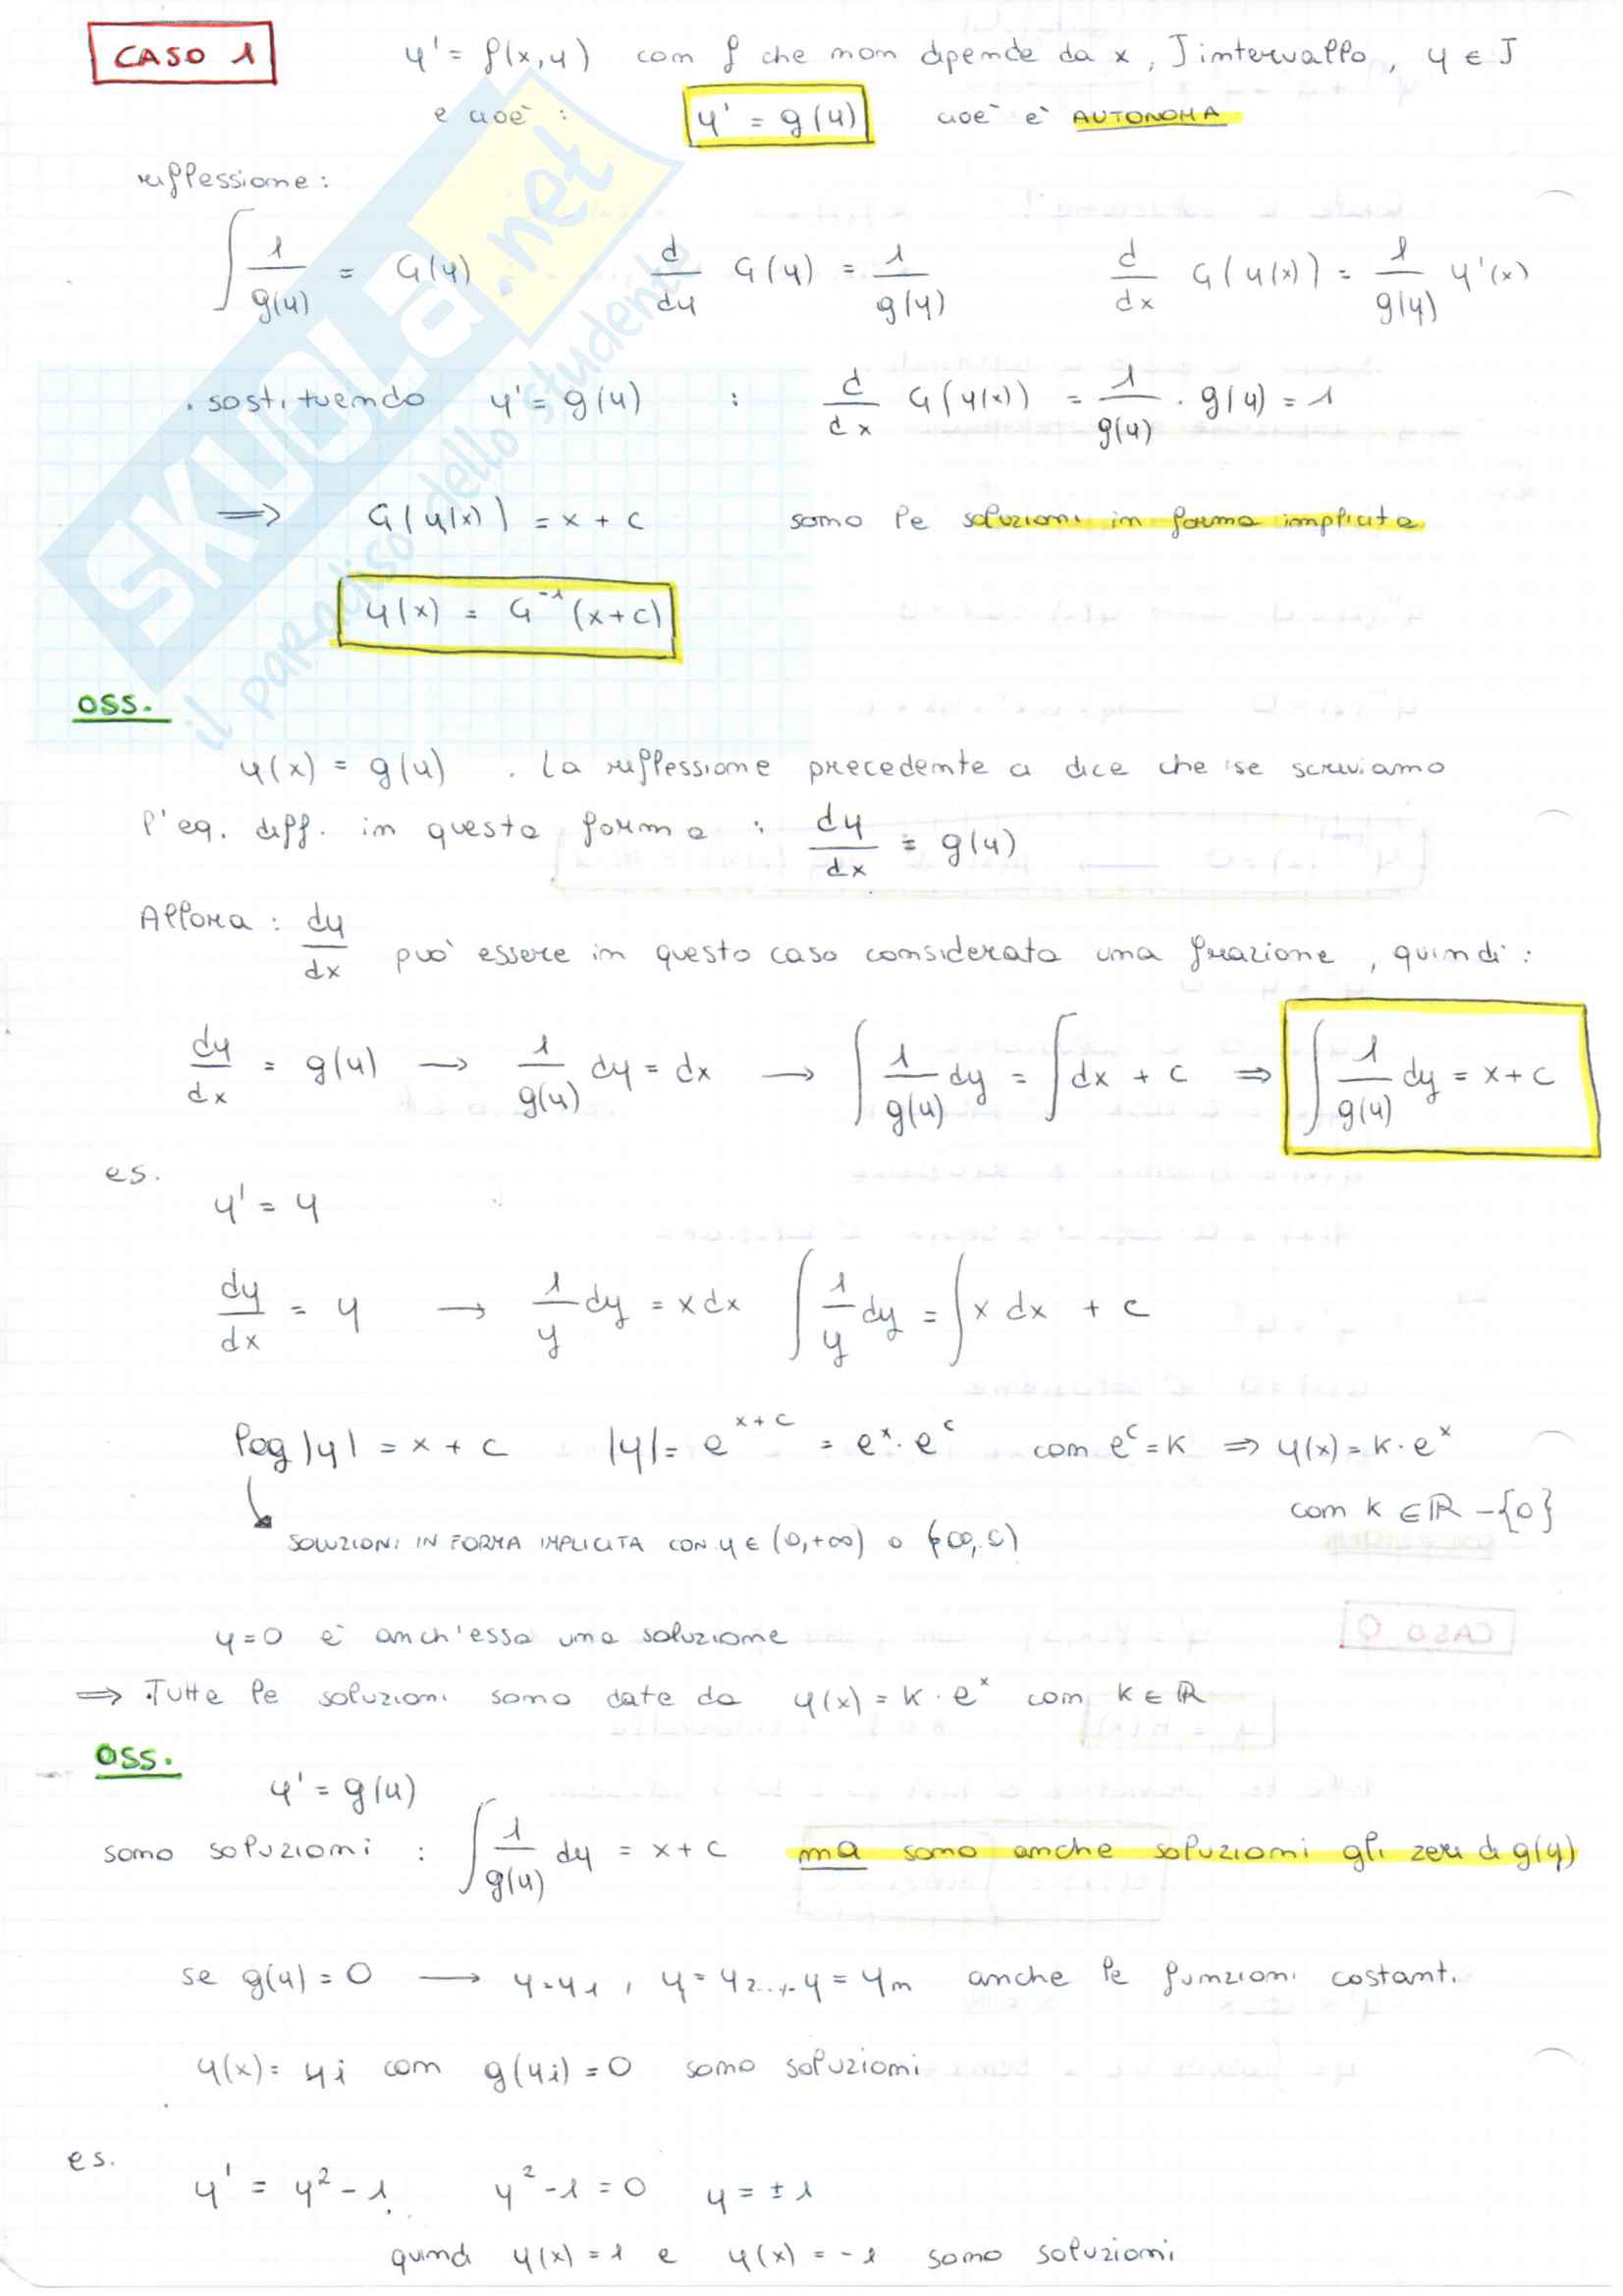 CASO 1 y' = f(x,y) con f che non dipende da x, J intervallo, y ∈ J
e cioè: y' = g(y) cioè è AUTONOMA
riflessione:
∫ 1/g(y) = G(y) d/dy G(y) = 1/g(y) d/dx G(y(x)) = 1/g(y) y'(x)
. sostituendo y' = g(y) : d/dx G(y(x)) = 1/g(y) · g(y) = 1
⇒ G(y(x)) = x + c sono le soluzioni in forma implicita
y(x) = G⁻¹(x+c)
OSS.
y(x) = g(y) . La riflessione precedente ci dice che se scriviamo
l'eq. diff. in questa forma : dy/dx = g(y)
Allora : dy/dx può essere in questo caso considerata una frazione, quindi :
dy/dx = g(y) → 1/g(y) dy = dx → ∫ 1/g(y) dy = ∫ dx + c ⇒ ∫ 1/g(y) dy = x + c
es.
y' = y
dy/dx = y → 1/y dy = x dx ∫ 1/y dy = ∫ x dx + c
log|y| = x + c |y| = e^(x+c) = e^x · e^c con e^c = k ⇒ y(x) = k · e^x
con k ∈ ℝ - {0}
SOLUZIONI IN FORMA IMPLICITA CON y ∈ (0,+∞) o (-∞,0)
y=0 è anch'essa una soluzione
⇒ Tutte le soluzioni sono date da y(x) = k · e^x con k ∈ ℝ
OSS.
y' = g(y)
sono soluzioni : ∫ 1/g(y) dy = x + c ma sono anche soluzioni gli zeri di g(y)
se g(y) = 0 → y=y₁ , y = y₂ ... , y = yₙ anche le funzioni costanti
y(x) = yi con g(yi) = 0 sono soluzioni
es.
y' = y² - 1 y² - 1 = 0 y = ± 1
quindi y(x) = 1 e y(x) = -1 sono soluzioni
SKUOLA.net
il paradiso dello studente